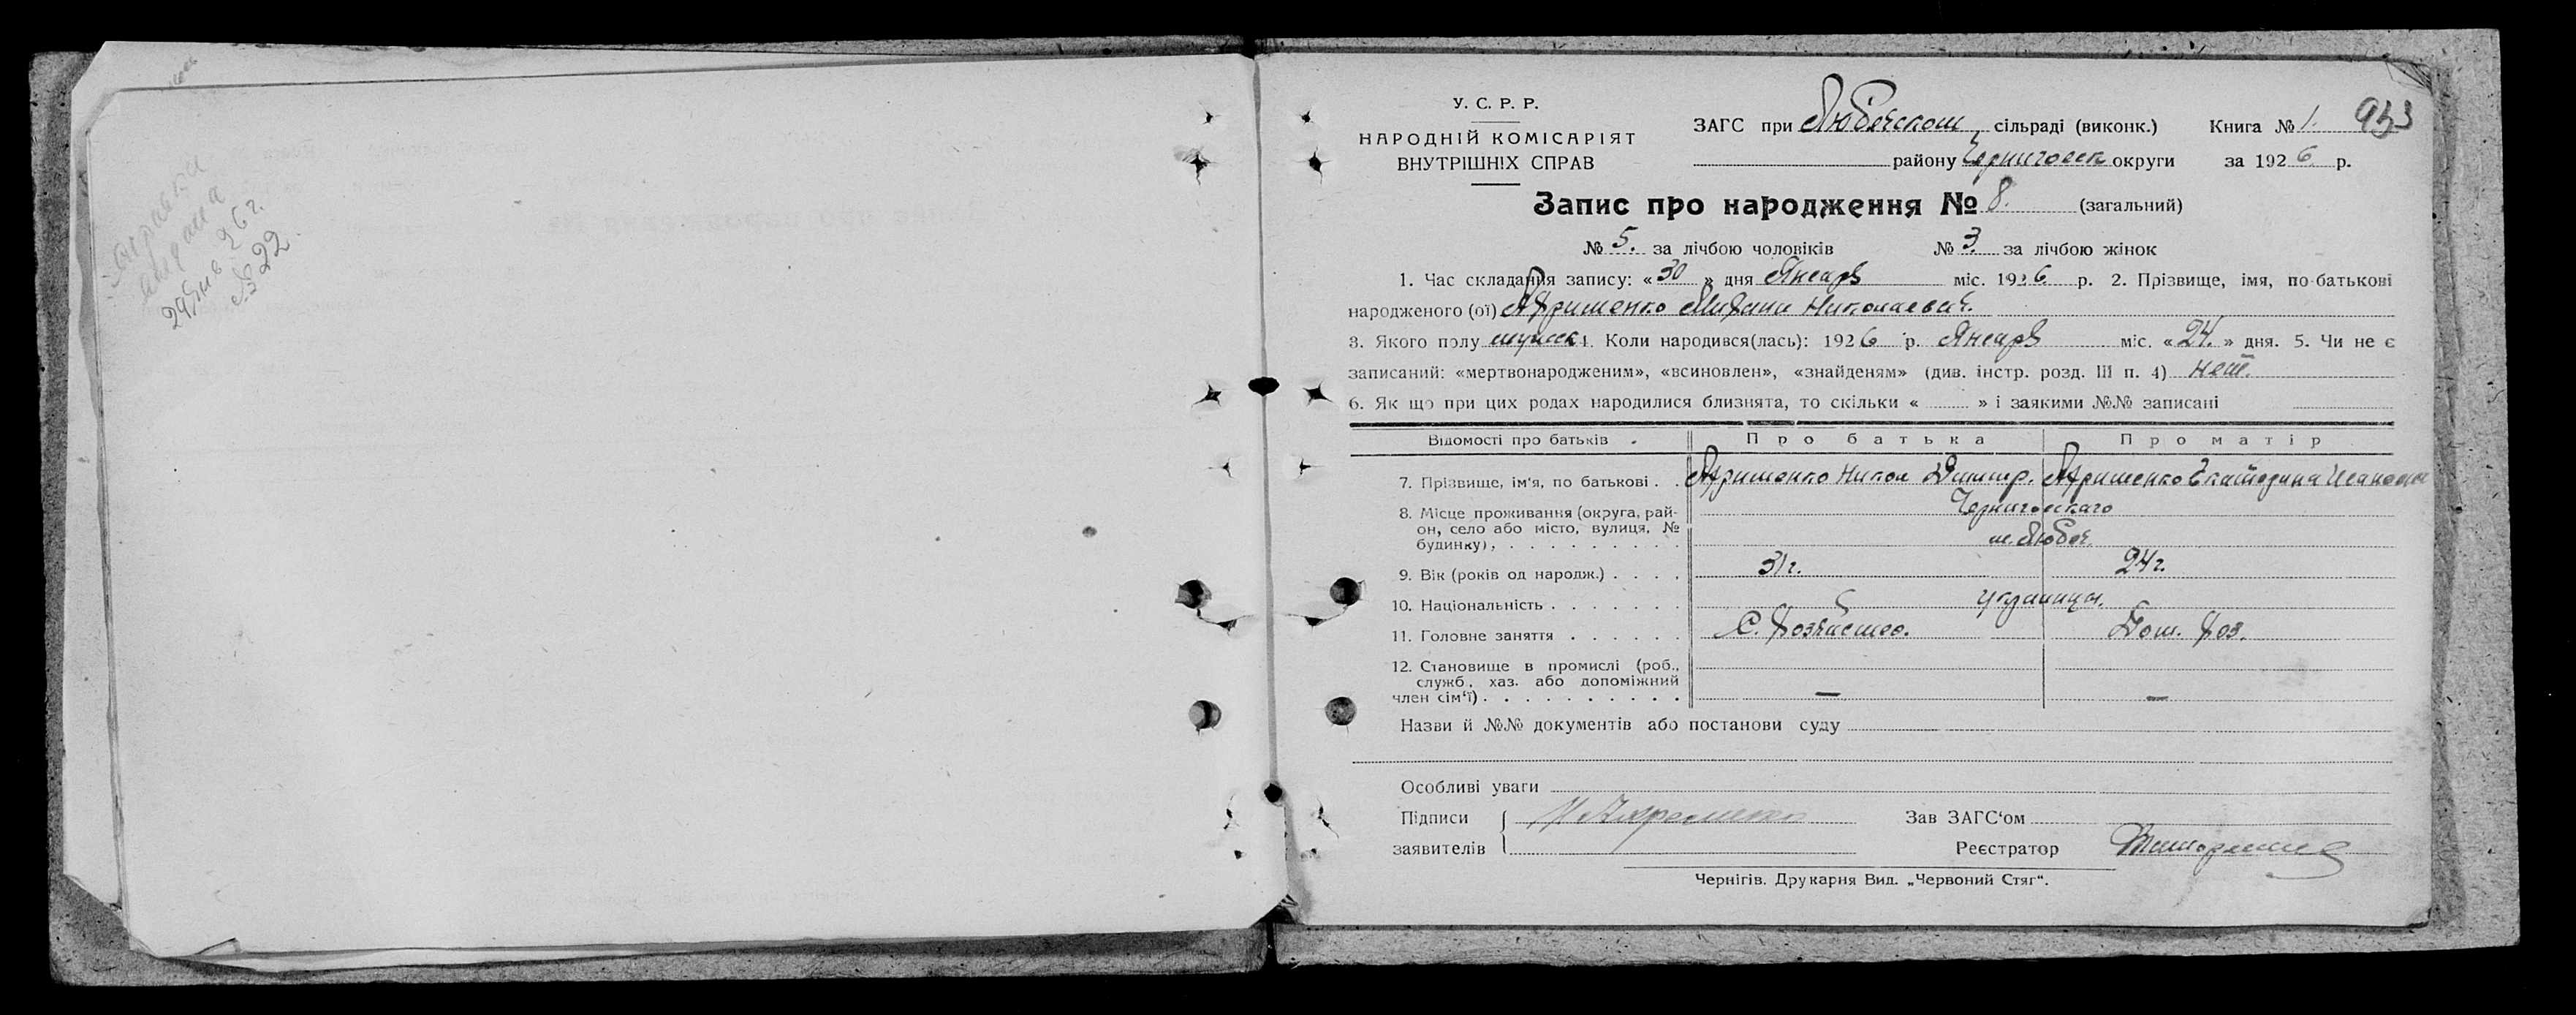 24 Янв 26 г.
№ 22
У. С. Р. Р.
НАРОДНІЙ КОМІСАРІЯТ
ВНУТРІШНІХ СПРАВ
ЗАГС при Любечском сільраді (виконк.) Книга № 1. 953
району Черниговск округи за 1926 р.
Запис про народження № 8. (загальний)
№ 5. за лічбою чоловіків № 3. за лічбою жінок
1. Час складання запису: «30» дня Января міс. 1926 р. 2. Прізвище, імя, по-батькові
народженого (ої) Михаил Николаевич.
3. Якого полу мужск 4. Коли народився(лась): 1926 р. Января міс. «24.» дня. 5. Чи не є
записаний: «мертвонародженим», «всиновлен», «знайденям» (див. інстр. розд. III п. 4) нет.
6. Як що при цих родах народилися близнята, то скільки « » і заякими №№ записані
Відомості про батьків Про батька Про матір
7. Прізвище, ім'я, по батькові . . Никол Димитр. Екатерина Ивановна
8. Місце проживання (округа, рай- Черниговскаго
он, село або місто, вулиця, №
будинку) . . . . . . . . . . м. Любеч.
9. Вік (років од народж.) . . . . 31 г. 24 г.
10. Національність . . . . . . . Украинцы.
11. Головне заняття . . . . . . С. Хозяйство. Дом. Хоз.
12. Становище в промислі (роб.,
служб., хаз. або допоміжний
член сім'ї) . . . . . . . . . . — —
Назви й №№ документів або постанови суду
Особливі уваги
Підписи Зав ЗАГС'ом
заявителів Реєстратор
Чернігів. Друкарня Вид. „Червоний Стяг“.